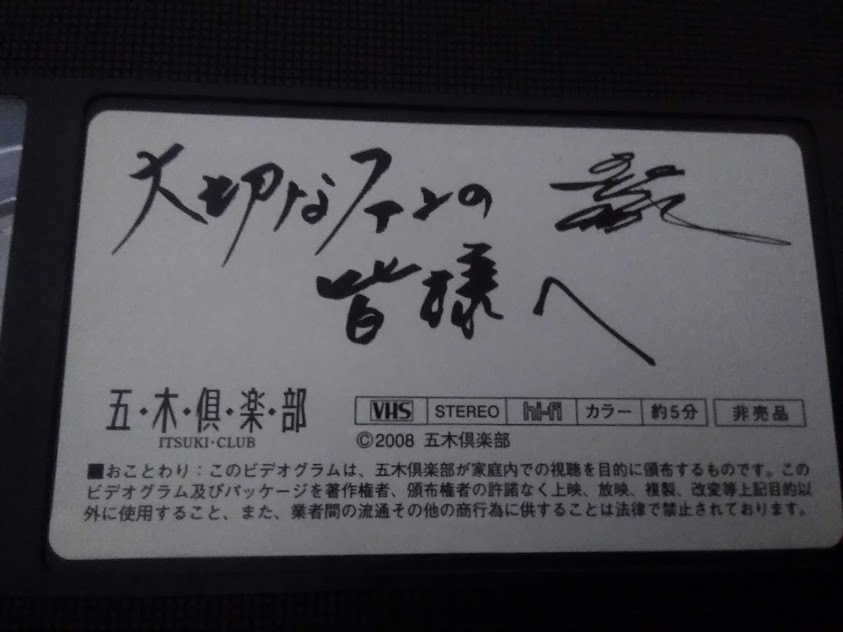 大切なファンの
皆様へ
五・木・倶・楽・部
ITSUKI・CLUB
VHS STEREO hi-fi カラー 約5分 非売品
©2008 五木倶楽部
■おことわり：このビデオグラムは、五木倶楽部が家庭内での視聴を目的に頒布するものです。この
ビデオグラム及びパッケージを著作権者、頒布権者の許諾なく上映、放映、複製、改変等上記目的以
外に使用すること、また、業者間の流通その他の商行為に供することは法律で禁止されております。